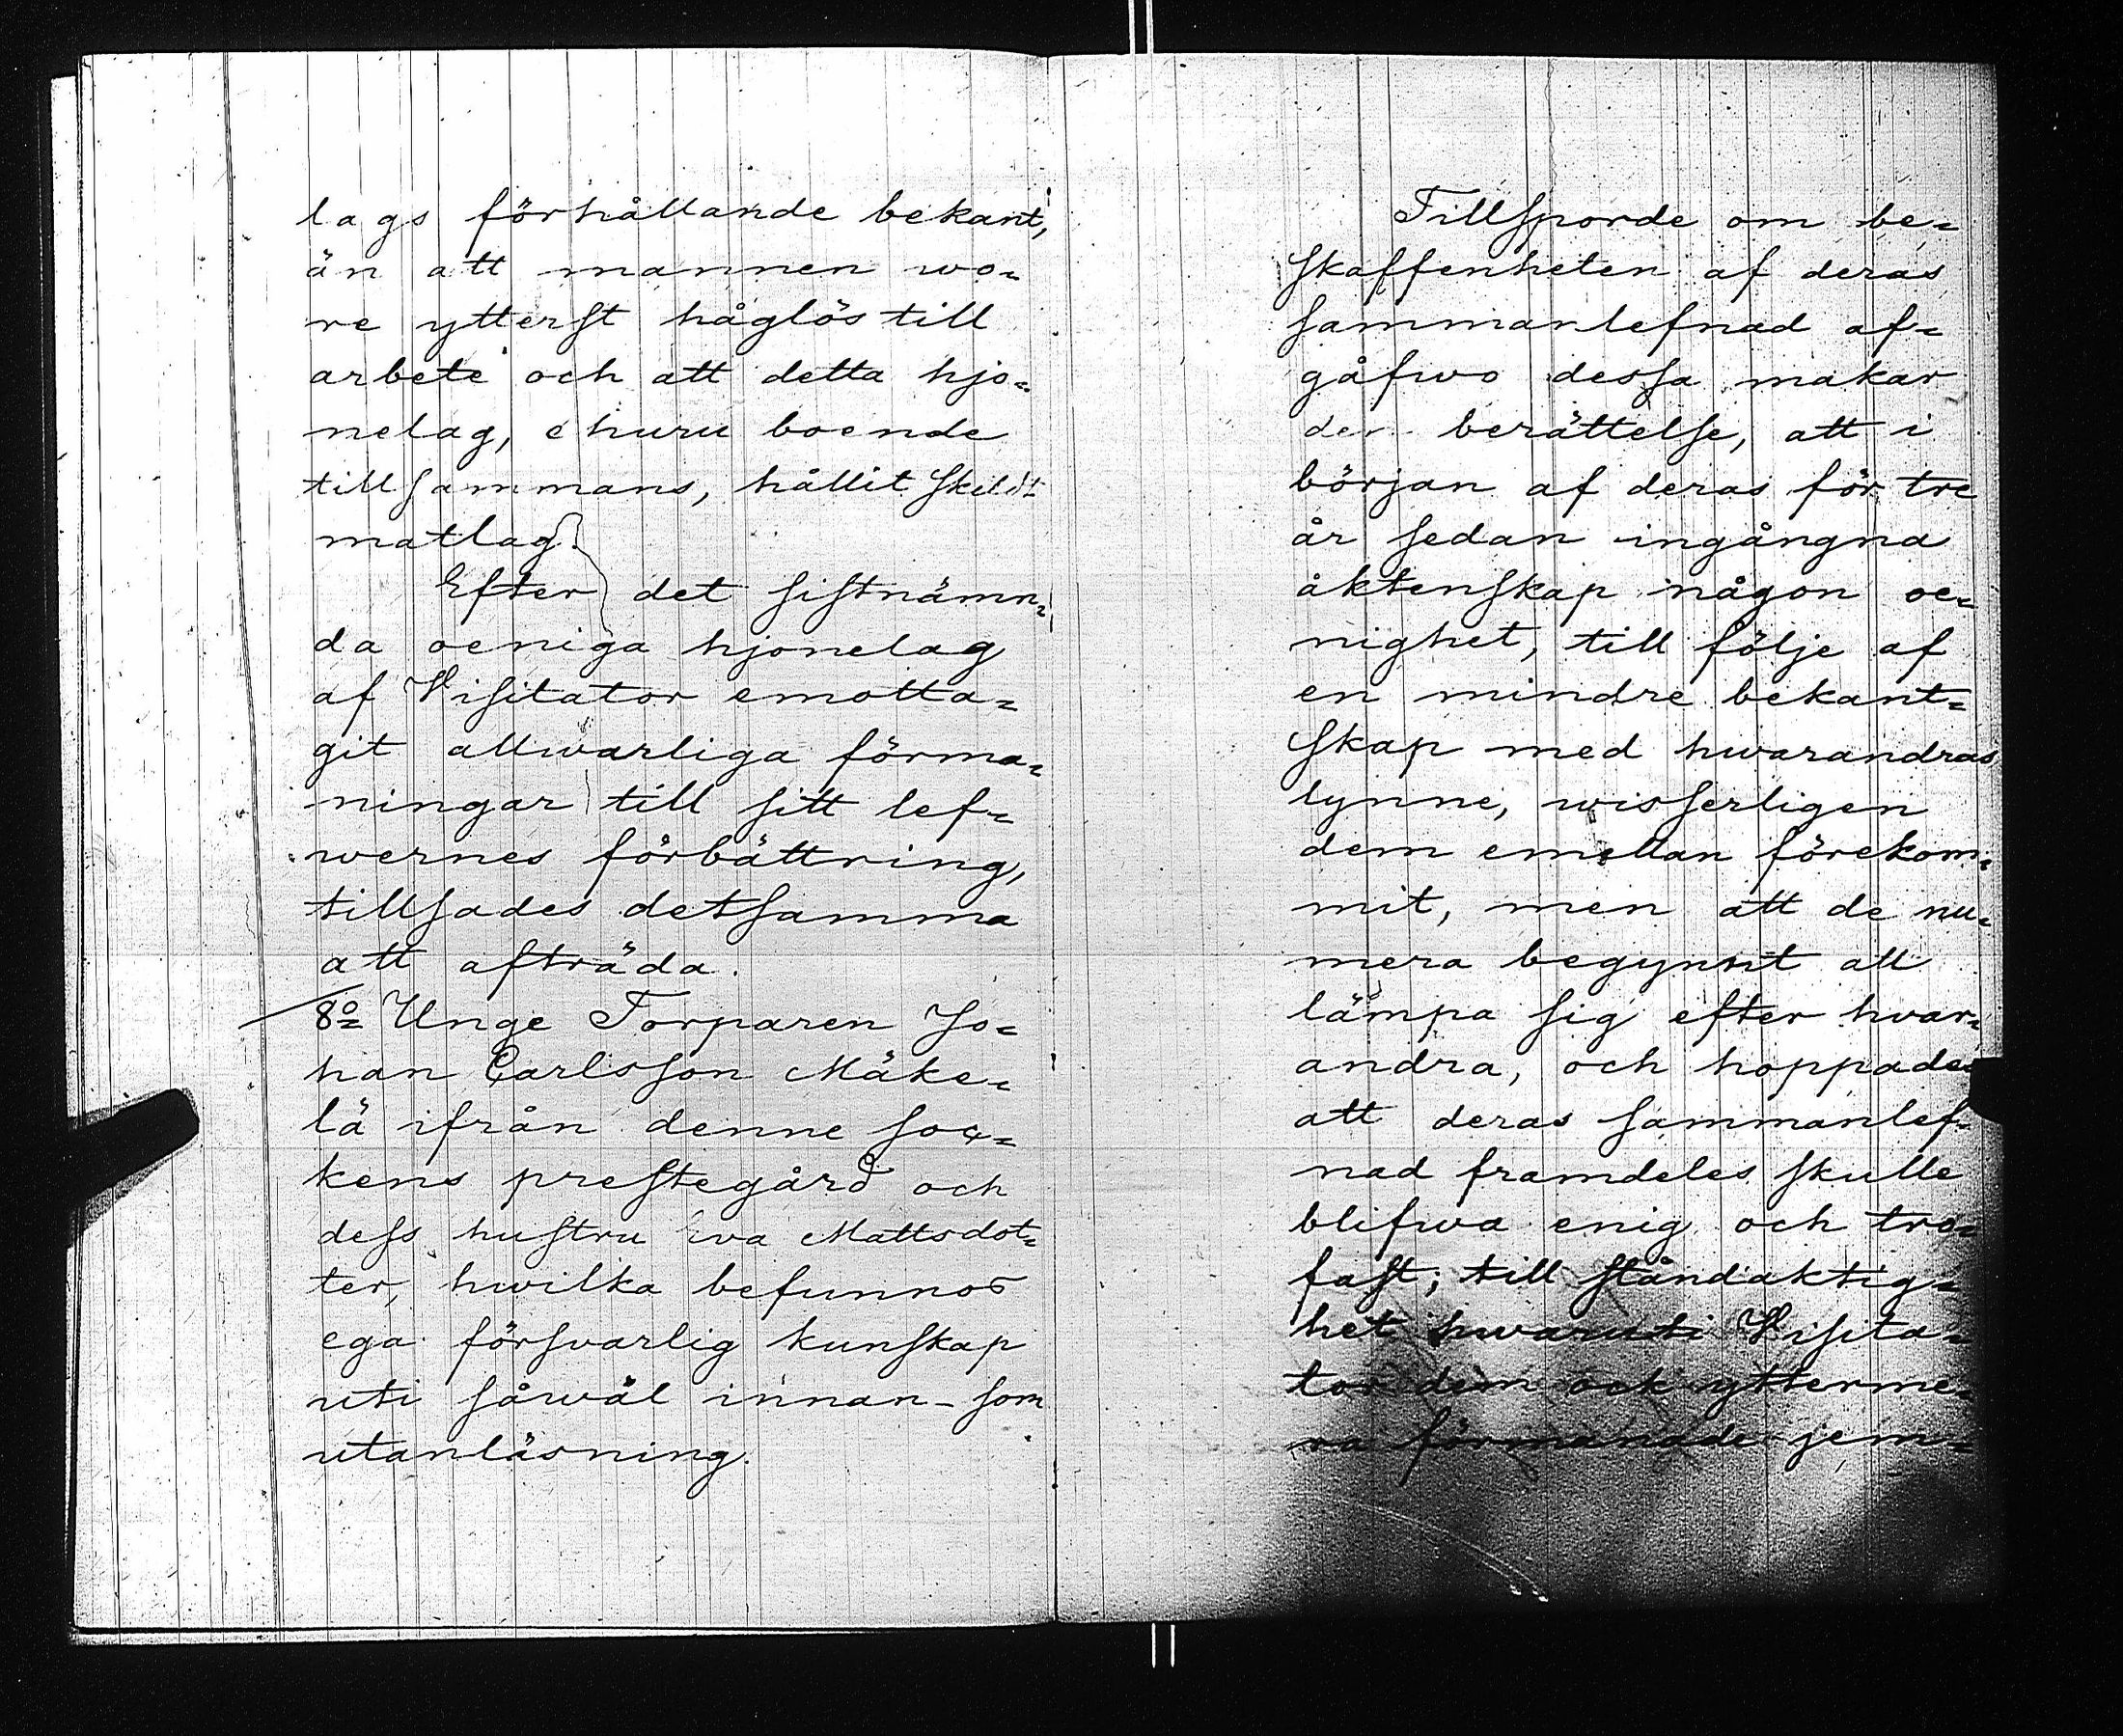 lags förhållande bekant,
än att mannen wo=
re ytterst håglös till
arbete och att detta hjo=
nelag, ehuru boende
tillsammans, hållit skildt
matlag.
Efter det sistnämn=
da oeniga hjonelag
af Visitator emotta=
git allwarliga förma=
ningar till sitt lef=
wernes förbättring,
tillsades detsamma
att afträda.
8o= Unge Torparen Jo=
han Carlsson Mäke=
lä ifrån denne soc=
kens prestegård och
dess hustru Eva Mattsdot=
ter, hwilka befunnos
ega försvarlig kunskap
uti såwäl innan- som
utanläsning.
Tillsporde om be=
skaffenheten af deras
sammanlefnad af=
gåfwo dessa makar
den berättelse, att i
början af deras för tre
år sedan ingångna
äktenskap någon oe=
nighet, till följe af
en mindre bekant=
skap med hwarandras
lynne, wisserligen
dem emellan förekom=
mit, men att de nu=
mera begynnt att
lämpa sig efter hvar=
andra, och hoppades
att deras sammanlef=
nad framdeles skulle
blifwa enig och tro=
fast; till ståndaktig=
het hwaruti Visita=
tor dem ock ytterme=
ra förmanade jem=